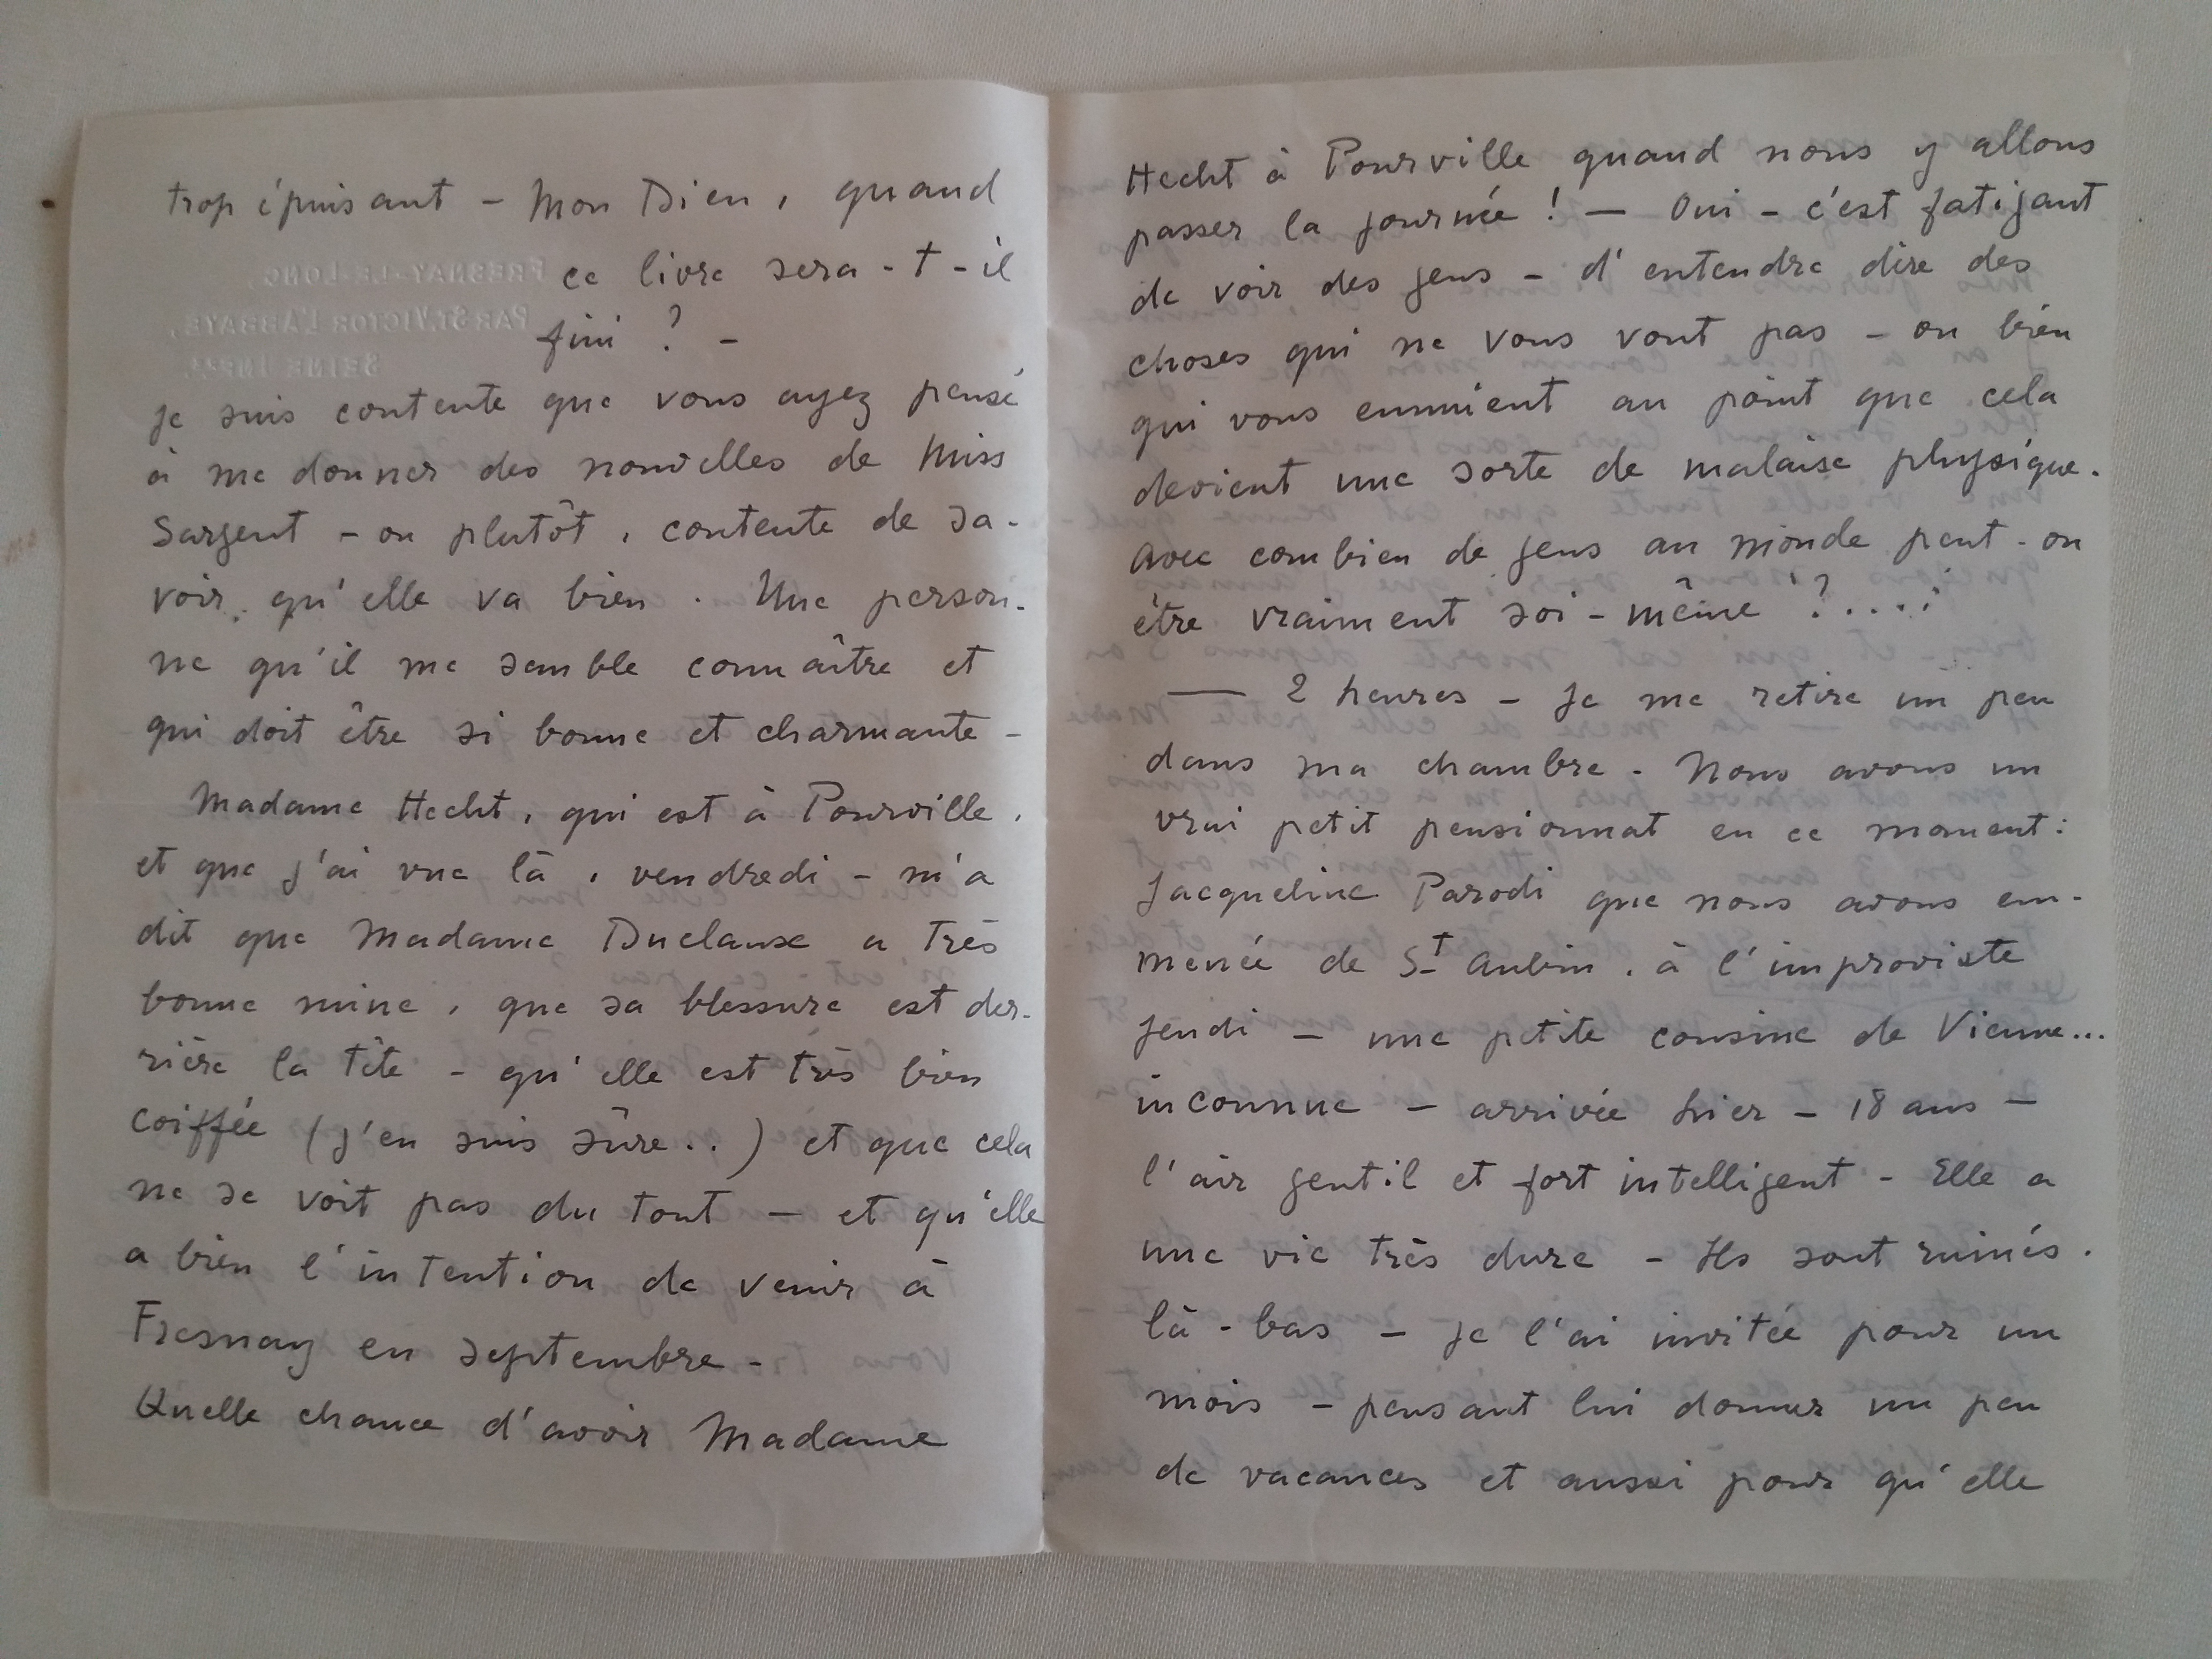 trop épuisant - Mon Dieu, quand
ce livre sera-t-il
fini ? -
FRESNAY-LE-LONG,
PAR ST. VICTOR L'ABBAYE,
SEINE INFRE.
je suis contente que vous ayez pensé
à me donner des nouvelles de Miss
Sargent - ou plutôt, contente de sa-
voir qu'elle va bien. Une person-
ne qu'il me semble connaître et
qui doit être si bonne et charmante -
Madame Hecht, qui est à Pourville,
et que j'ai vue là, vendredi - m'a
dit que Madame Duclaux a très
bonne mine, que sa blessure est der-
rière la tête - qu'elle est très bien
coiffée (j'en suis sûre..) et que cela
ne se voit pas du tout - et qu'elle
a bien l'intention de venir à
Fresnay en septembre -
Quelle chance d'avoir Madame
Hecht à Pourville quand nous y allons
passer la journée ! - Oui - c'est fatigant
de voir des gens - d'entendre dire des
choses qui ne vous vont pas - ou bien
qui vous ennuient au point que cela
devient une sorte de malaise physique.
Avec combien de gens au monde peut-on
être vraiment soi-même ?....
— 2 heures - Je me retire un peu
dans ma chambre. Nous avons un
vrai petit pensionnat en ce moment :
Jacqueline Parodi que nous avons em-
menée de St Aubin, à l'improviste
jeudi - une petite cousine de Vienne...
inconnue - arrivée hier - 18 ans -
l'air gentil et fort intelligent - Elle a
une vie très dure - Ils sont ruinés.
là-bas - je l'ai invitée pour un
mois - pensant lui donner un peu
de vacances et aussi pour qu'elle